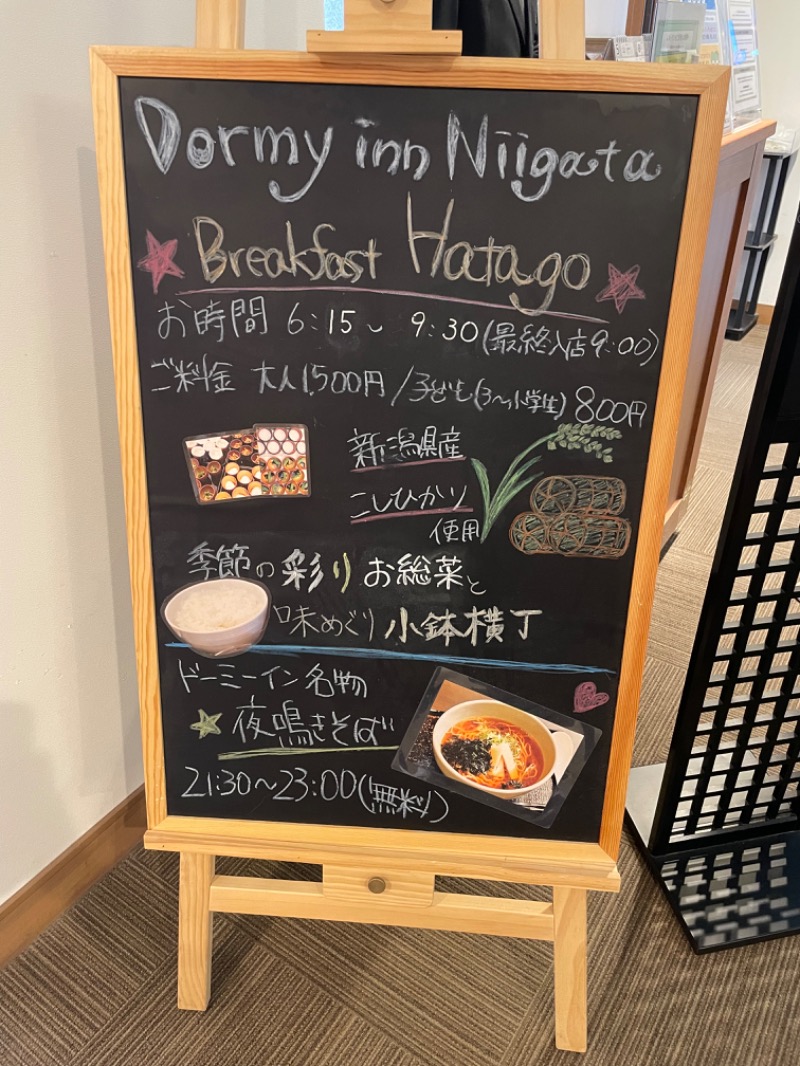 Dormy inn Niigata
Breakfast Hatago
お時間 6:15~ 9:30(最終入店9:00)
ご料金 大人1,500円/子ども(3~小学生)800円
新潟県産
こしひかり
使用
季節の彩りお総菜と
味めぐり小鉢横丁
ドーミーイン名物
夜鳴きそば
21:30~23:00(無料)